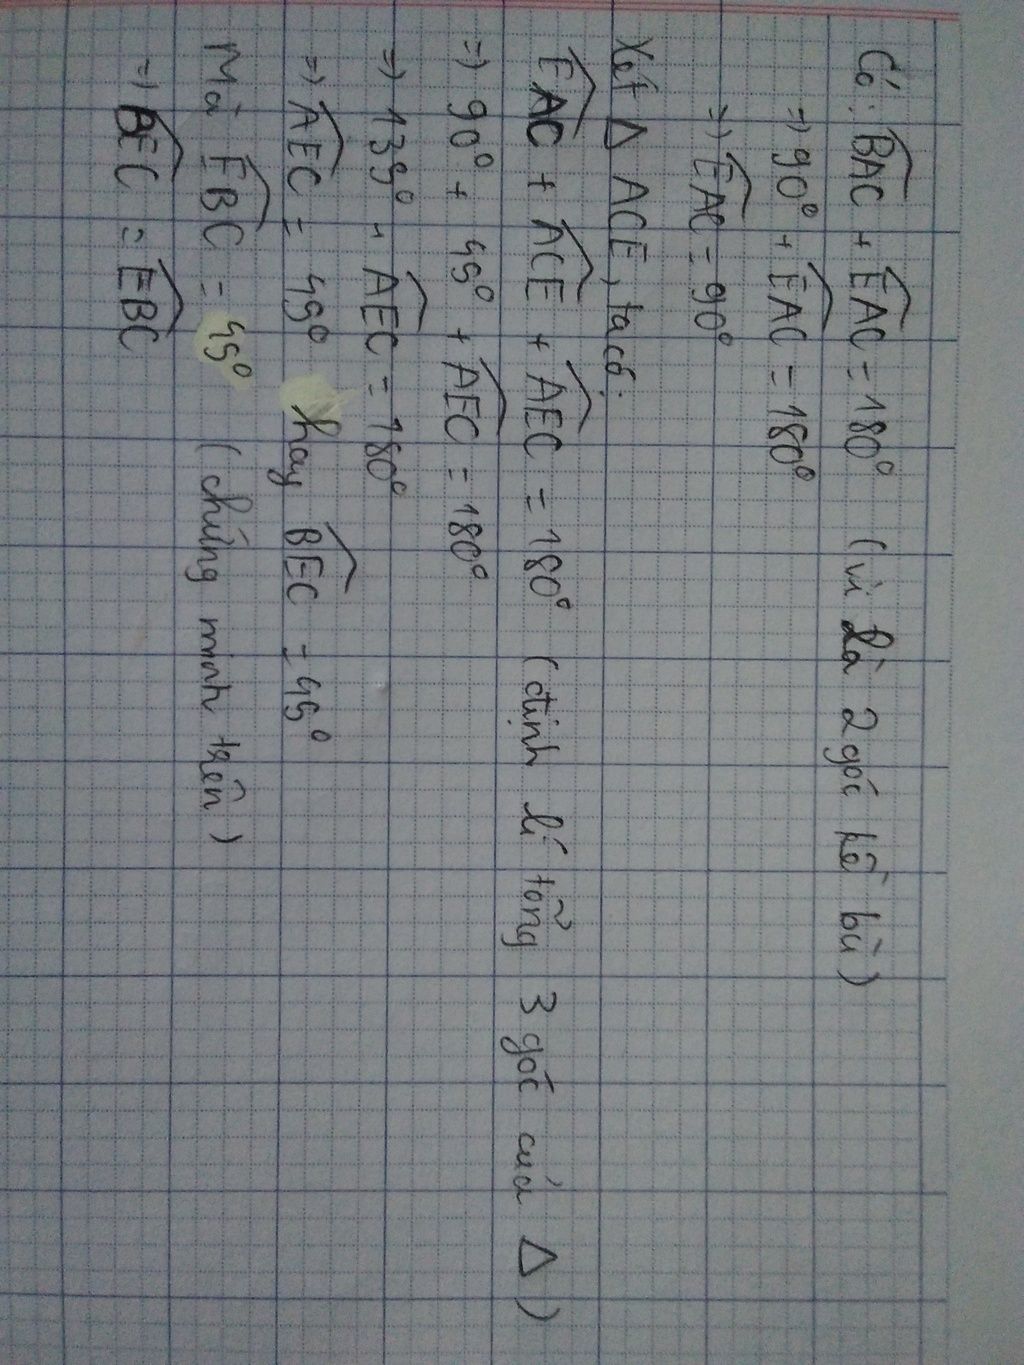 Có: BAC + EAC = 180° (vì là 2 góc kề bù)
=> 90° + EAC = 180°
=> EAC = 90°
Xét Δ ACE, ta có:
EAC + ACE + AEC = 180° (định lí tổng 3 góc của Δ)
=> 90° + 45° + AEC = 180°
=> 135° + AEC = 180°
=> AEC = 45° hay BEC = 45°
Mà EBC = 45° (chứng minh trên)
=> BEC = EBC